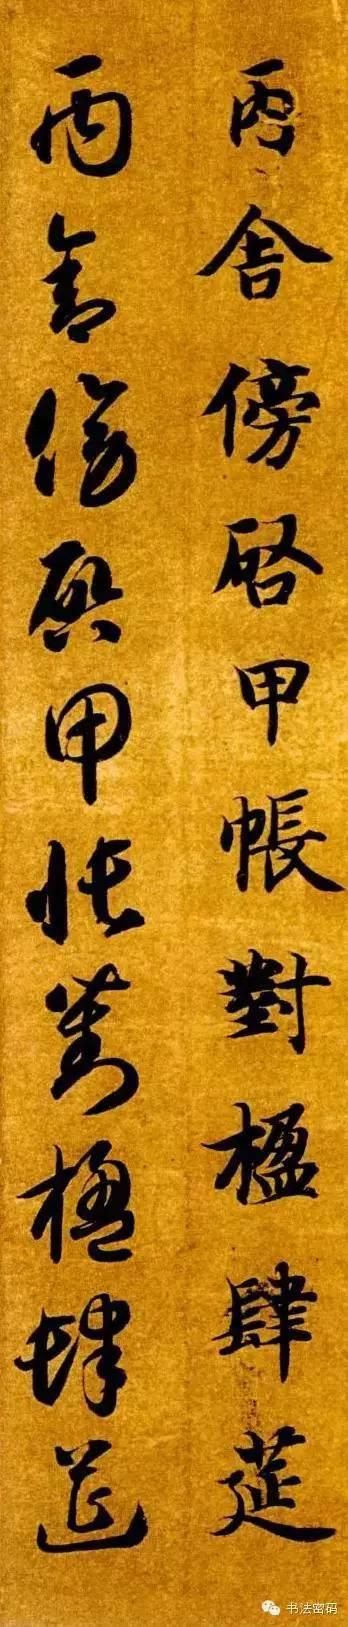 丙舍傍啓甲帳對楹肆莚
丙舍傍啓甲帳對楹肆莚
书法密码